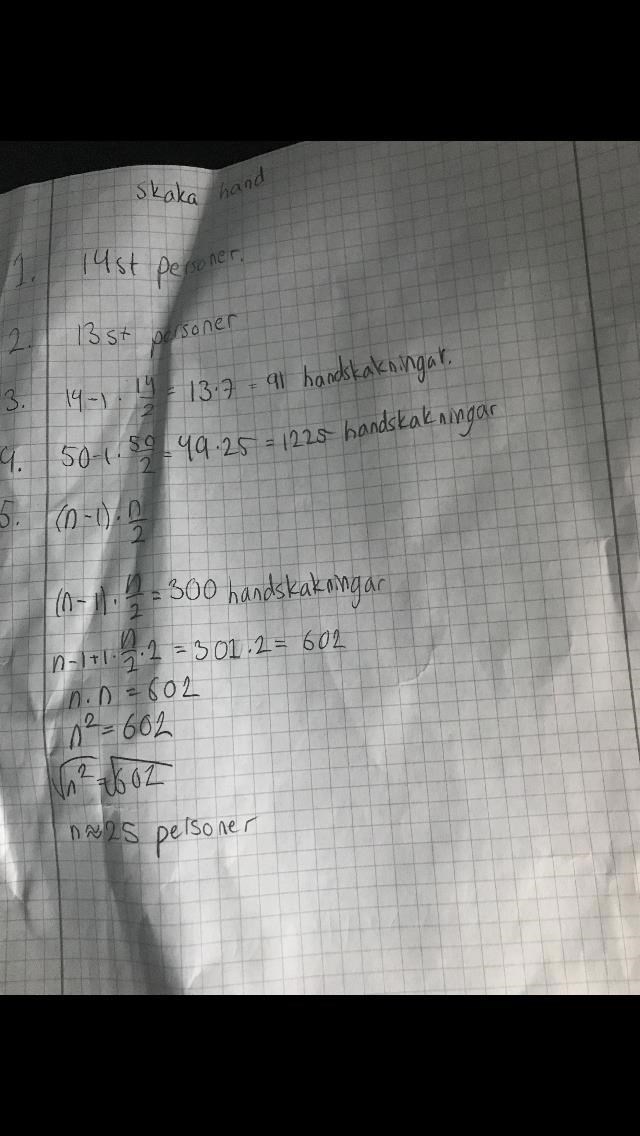 Skaka hand
1. 14st personer.
2. 13st personer
3. 14-1 · 14/2 = 13·7 = 91 handskakningar.
4. 50-1 · 50/2 = 49·25 = 1225 handskakningar
5. (n-1) · n/2
(n-1) · n/2 = 300 handskakningar
n-1+1 · n/2 · 2 = 301·2 = 602
n·n = 602
n² = 602
√n² = √602
n≈25 personer